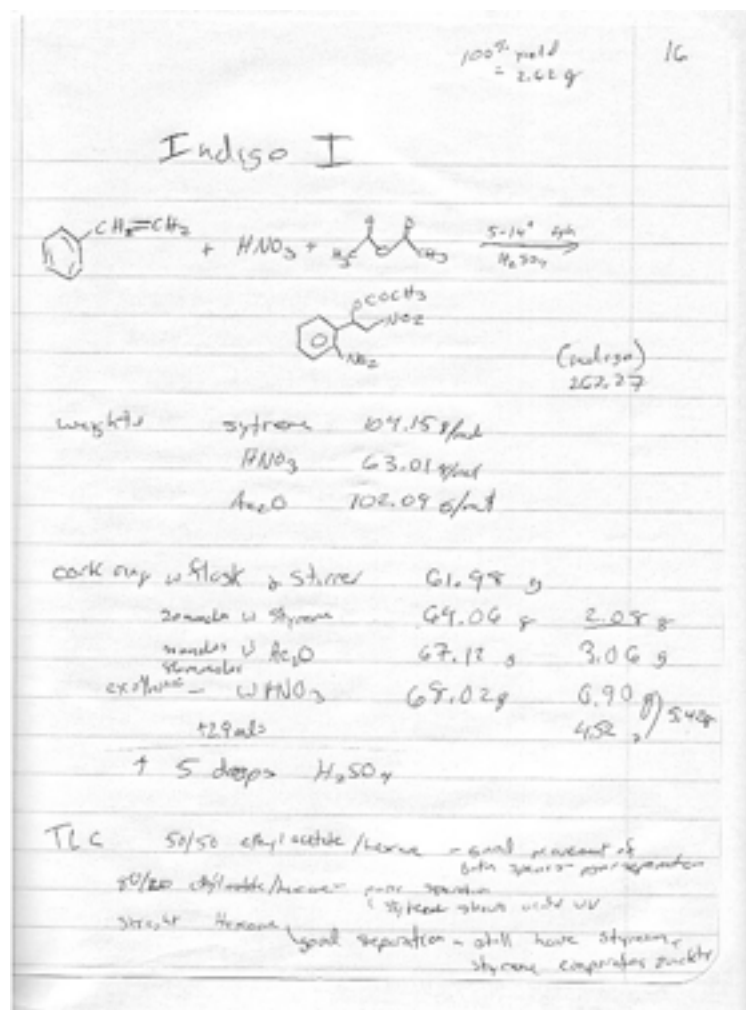 100% yield 16
= 2.62 g
Indigo I
CH=CH2 + HNO3 + H3C O CH3 5-14°
H2SO4
OCOCH3
NO2
NO2
(indigo)
262.27
weights sytrene 104.15 g/mol
HNO3 63.01 g/mol
Ac2O 102.09 g/mol
cork ring w flask & stirrer 61.98 g
w styrene 64.06 g 2.08 g
w Ac2O 67.12 g 3.06 g
- w HNO3 68.02 g 0.90 g
+29 mls 4.52 g 5.42g
+ 5 drops H2SO4
TLC 50/50 ethyl acetate/hexane - good movement of
both species - poor separation
80/20 ethyl acetate/hexane - poor separation
styrene shows under UV
straight Hexane good separation - still have styrene,
styrene evaporates quickly